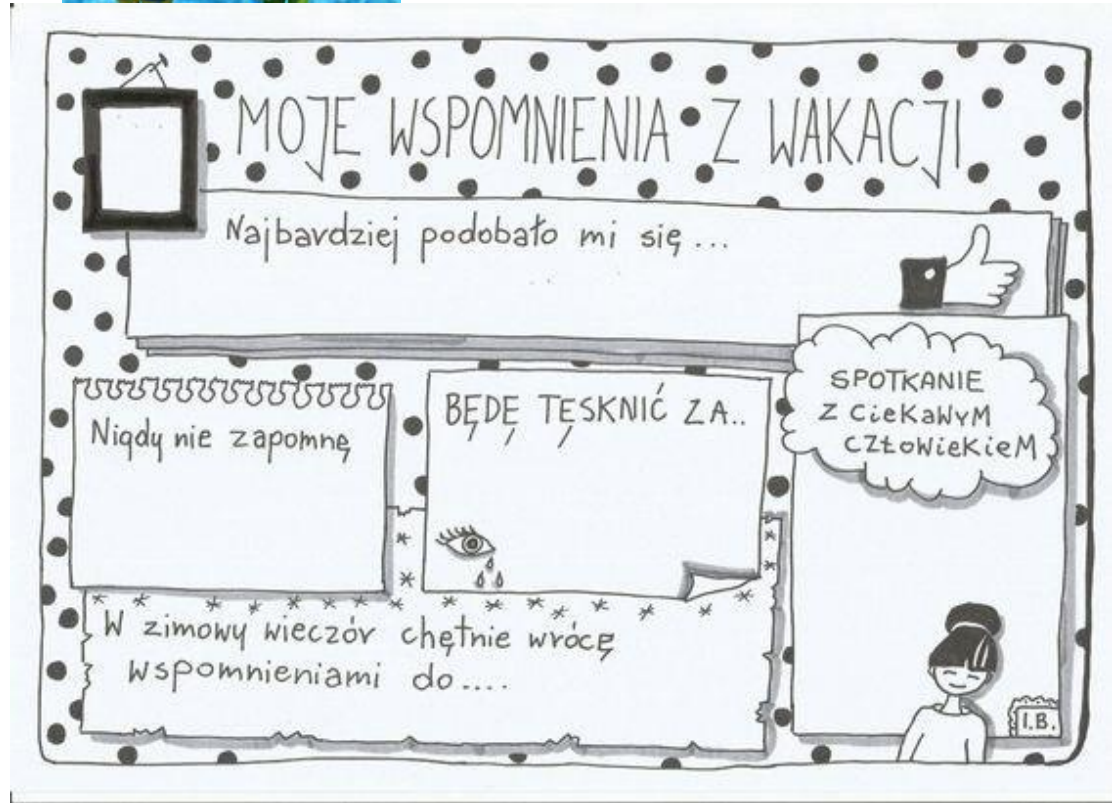 MOJE WSPOMNIENIA Z WAKACJI
Najbardziej podobało mi się...
Nigdy nie zapomnę
BĘDĘ TĘSKNIĆ ZA..
SPOTKANIE
Z CieKaWyM
CZŁoWieKieM
W zimowy wieczór chętnie wrócę
wspomnieniami do....
I.B.